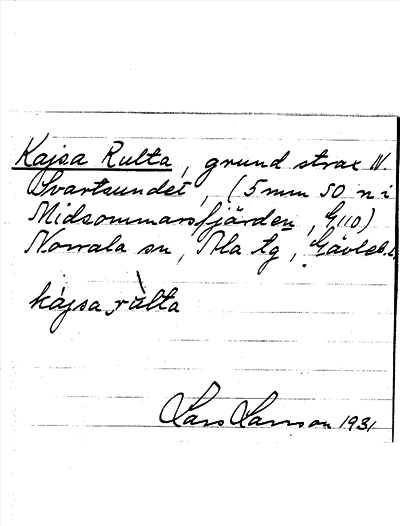 Kajsa Rulta, grund strax N.
Svartsundet, (5 mm SO n i
Midsommarsfjärden, G110)
Norrala sn, Ala tg, Gävleb.l.
kájsa rùlta
Lars Larsson 1931